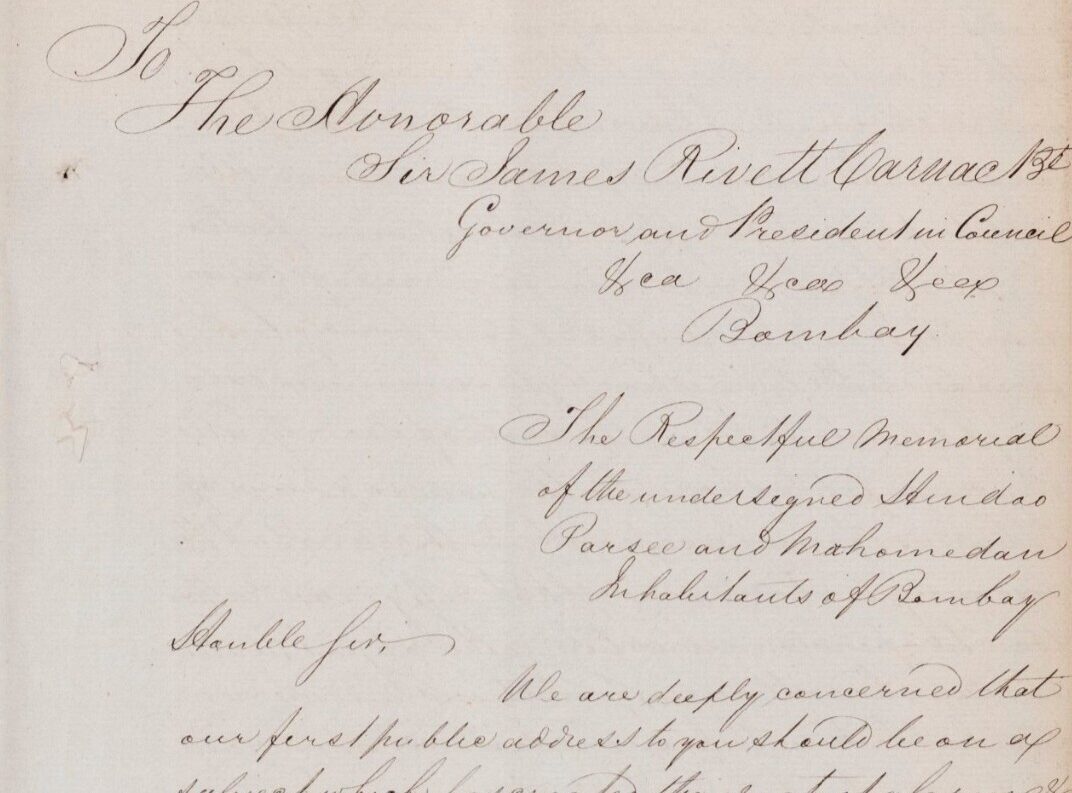 To
The Honorable
Sir James Rivett Carnac Bt
Governor and President in Council
&ca &ca &ca
Bombay
The Respectful Memorial
of the undersigned Hindoo
Parsee and Mahomedan
Inhabitants of Bombay
Honble Sir,
We are deeply concerned that
our first public address to you should be on a
subject which has created the